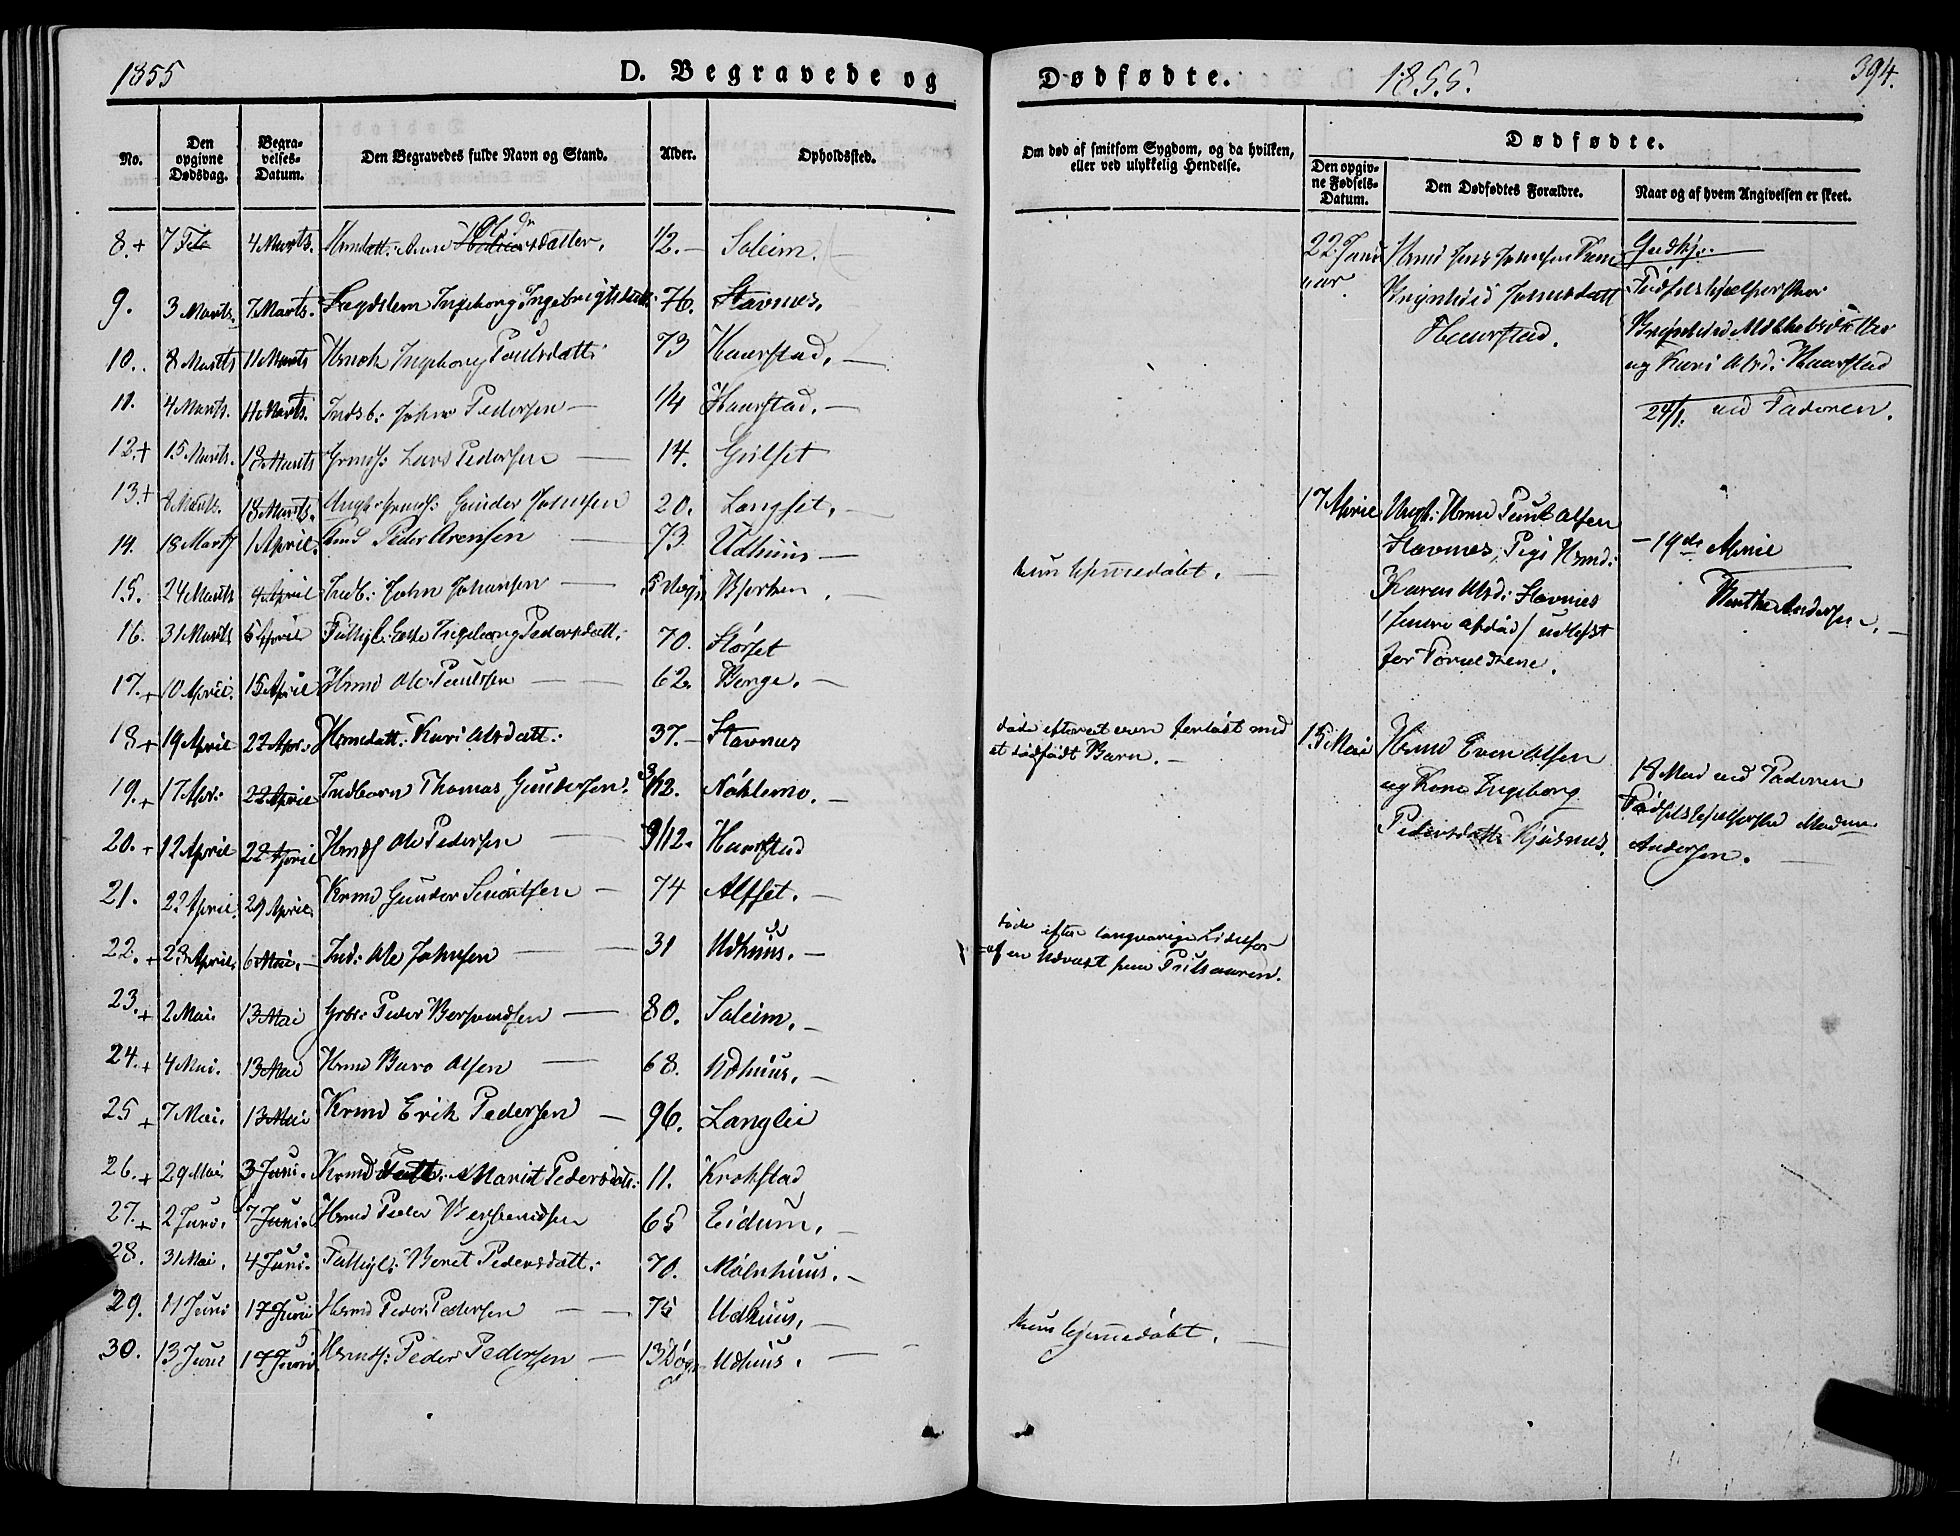 1855 D. Begravede og
No. Den opgivne Dødsdag. Begravelses-Datum. Den Begravedes fulde Navn og Stand. Alder. Opholdssted.
8.+ 7 Feb 4 Marts. Hrmdatt: Ane Olsdatter. 1/2. — Soleim.
9. 3 Marts. 7 Marts. Lægdslem Ingeborg Ingebrigtsdatt: 76. Stavnes.
10. 8 Marts 11 Marts Ingeborg Poulsdatt: 73 Haarstad. —
11. 4 Marts. 11 Marts. Indsb: John Pedersen — 1/4 Haarstad. —
12.+ 15 Marts. 18 Marts Grmds: Lars Pedersen — 14. Gulset
13.+ 8 Marts. 18 Marts. Ungk: Grmds: Gunder Johnsen 20. Langset. —
14. 18 Marts 1 April. Peder Arensen — 73. Udhuus —
15. 24 Marts 4 April Indb: John Johnsen — 5 Døgn Bjerken. —
16. 31 Marts 5 April Fattigl: Enke Ingeborg Pedersdatt: 70. Storset
17.+ 10 April. 15 April Hrmd Ole Paulsen — — 62. Benge. —
18+ 19 April 22 Apr: Hrmdatt: Kari Olsdatt: 37. — Stavnes
19.+ 17 Apr: 22 April Indbarn Thomas Gundersen. 3/12. Nøhlemo. —
20.+ 12 April 22 April Hrmds Ole Pedersen — 9/12. Haarstad
21. 22 April. 29 April. Krmd Gunder Siventsen — 74 Alfset. —
22.+ 23 April. 6 Mai. — Ind: Ole Johnsen — 31 Udhuus. —
23.+ 2 Mai. 13 Mai Peder Bersvendsen — 80. Soleim. —
24.+ 4 Mai. 13 Mai Hrmd Baro Olsen — 68. Udhuus. —
25+ 7 Mai. 13 Mai Krmd Erik Pedersen — 96. Langlie
26.+ 29 Mai 3 Juni. Krmd Datt: Marit Pedersdatt: 11. Krokstad
27.+ 2 Juni. 7 Juni. Hrmd Peder Bersvendsen 65 Eidum. —
28. 31 Mai. 4 Juni. Fattigl: Beret Pedersdatt: 70. Mølnhuus. —
29. 11 Juni 17 Juni Hrmd Peder Pedersen — — 75 Udhuus. —
30. 13 Juni 17 Juni Hrmds: Peder Pedersen — 13 Døgn Udhuus. —
Dødfødte. 1855. 394.
Om død af smitsom Sygdom, og da hvilken, eller ved ulykkelig Hendelse.
Dødfødte.
Den opgivne Fødsels-Datum. Den Dødfødtes Forældre. Naar og af hvem Angivelsen er skeet.
kun hjemmedøbt. —
døde efterat være forløst med
et dødfødt Barn. —
døde efter langvarige Lidelser
af en Udvæxt paa
kun hjemmedøbt. —
22. Januar.
Hrmd Jens Johnsen
Brynhild Johnsdatt
Haarstad.
Fødselshjælperske
Brynhild
og Kari Olsd: Haarstad
24/1. ved Faderen.
17 April
Ungk: Hrmd Paul Olsen
Stavnes, Pige Hrmd:
Karen Olsd: Stavnes
/senere afdød/ udlagt
for Forældrene.
— 19de April
Berthe Andersen. —
15 Mai
Hrmd Even Olsen
og Kone Ingeborg
Pedersdatt: Kjøsnes.
18 Mai ved Faderen
Fødselshjelperske Madme
Andersen. —